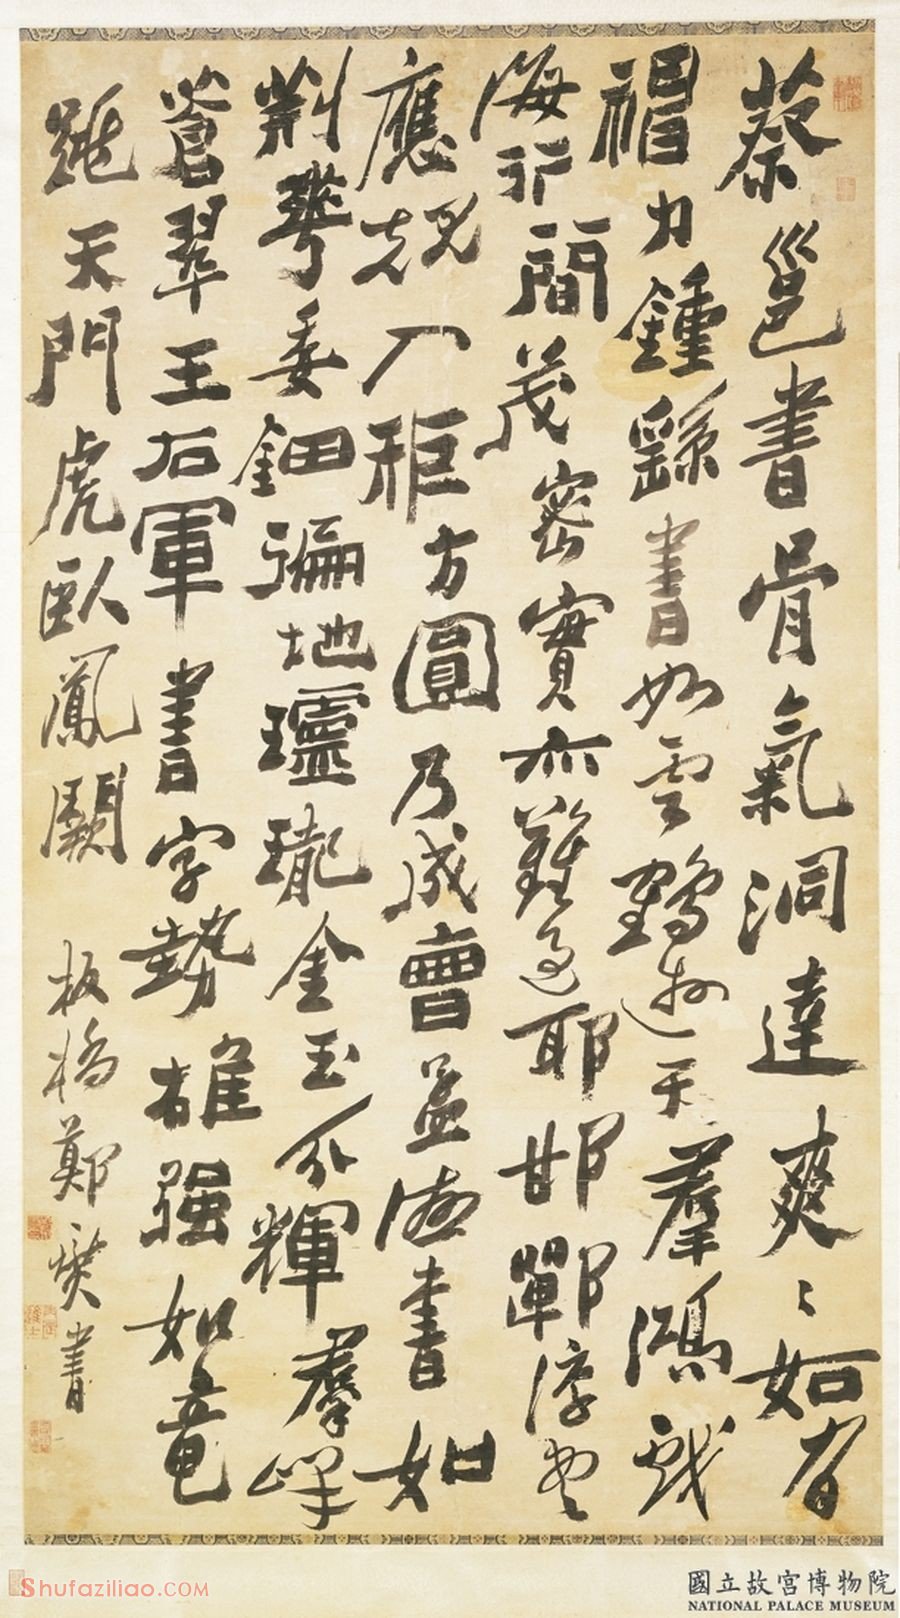 蔡邕書骨氣洞達爽爽如有
神力鍾繇書如雲鶴遊天羣鴻戲
海行間茂密實亦難過耶邯鄲淳書
應規入矩方圓乃成曾孟德書如
荆華委鈿遍地璢瓏金玉分輝羣峰
蒼翠王右軍書字勢雄强如龍
跳天門虎臥鳳闕 板橋鄭燮書
Shufaziliao.COM
國立故宮博物院
NATIONAL PALACE MUSEUM